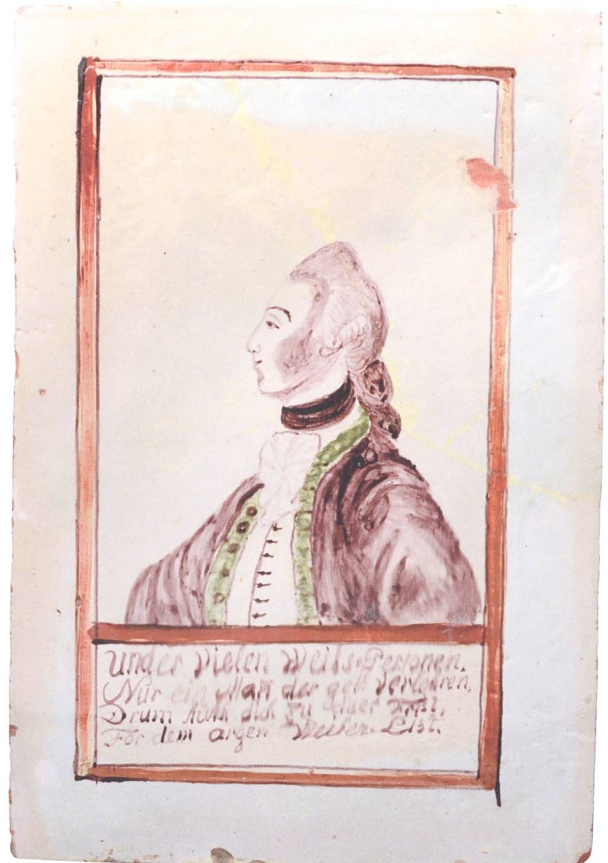 Under Vielen Weibs-Personen.
Nur ein Man der geht Verlohren,
Drum dich zu
For dem argen Weiber List.